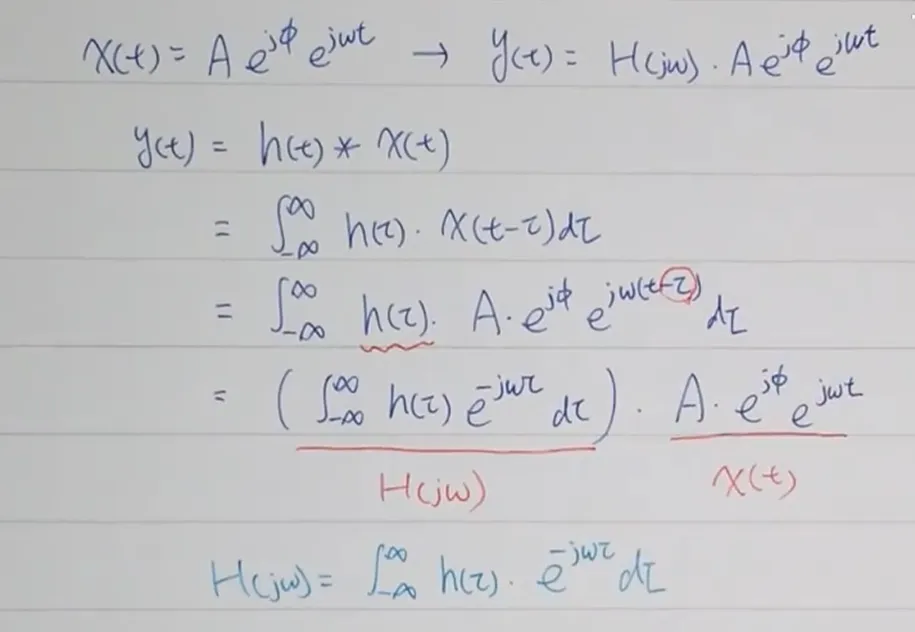 x(t) = A e^{jϕ} e^{jωt} → y(t) = H(jω) · A e^{jϕ} e^{jωt}
y(t) = h(t) * x(t)
= ∫_{-∞}^{∞} h(τ) · x(t-τ) dτ
= ∫_{-∞}^{∞} h(τ) · A · e^{jϕ} e^{jω(t-τ)} dτ
= ( ∫_{-∞}^{∞} h(τ) e^{-jωτ} dτ ) · A · e^{jϕ} e^{jωt}
H(jω) x(t)
H(jω) = ∫_{-∞}^{∞} h(τ) · e^{-jωτ} dτ